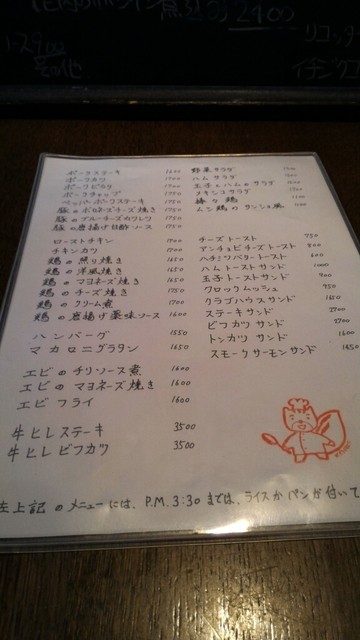 2400
リコッタ
その他
ポークステーキ 1600
ポークカツ 1700
ポークピカタ 1700
ポークチャップ 1750
ペッパーポークステーキ
豚のボルネーズチーズ焼き 1750
豚のブルーチーズカツレツ
豚の唐揚げ甘酢ソース 1750
ローストチキン 1700
チキンカツ 1700
鶏の照り焼き 1650
鶏の洋風焼き 1650
鶏のマヨネーズ焼き 1650
鶏のチーズ焼き 1750
鶏のクリーム煮 1700
鶏の唐揚げ薬味ソース 1600
ハンバーグ 1550
マカロニグラタン 1650
エビのチリソース煮 1600
エビのマヨネーズ焼き 1600
エビフライ 1600
牛ヒレステーキ 3500
牛ヒレビフカツ 3500
野菜サラダ
ハムサラダ
玉子とハムのサラダ
メキシコサラダ
チーズトースト 750
アンチョビチーズトースト 800
ハチミツバタートースト 600
ハムトーストサンド 1000
玉子トーストサンド 900
クロックムッシュ 950
クラブハウスサンド 1650
ステーキサンド 2700
ビフカツサンド 2700
トンカツサンド
スモークサーモンサンド 1450
左上記のメニューには、P.M.3:30までは、ライスかパンが付いて